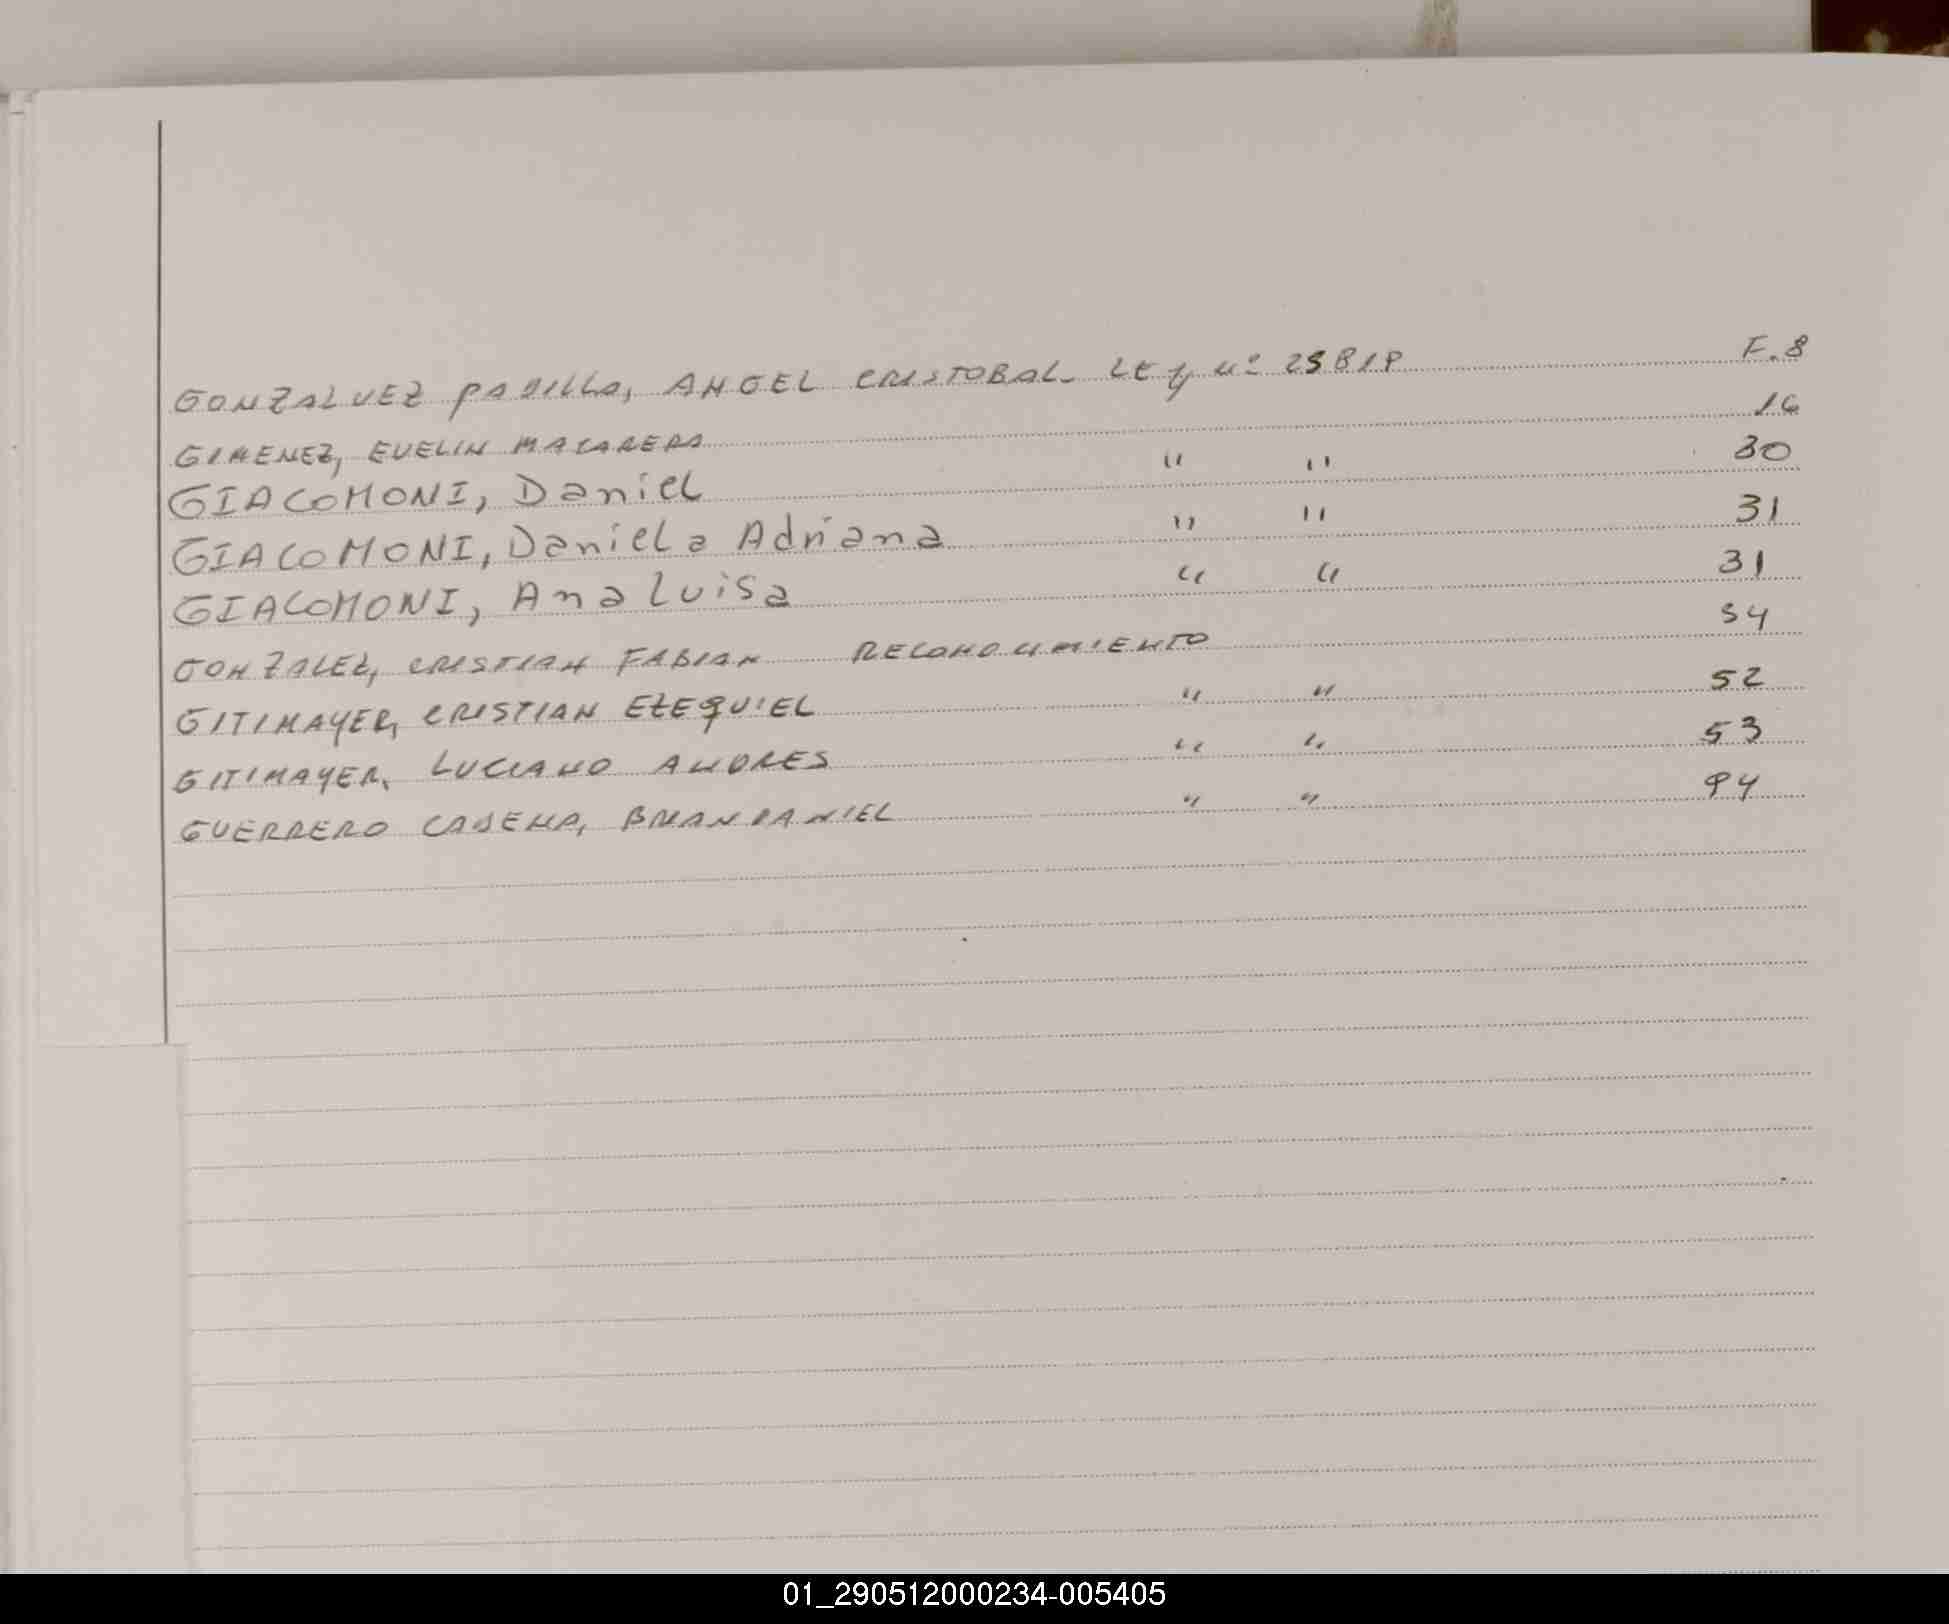 GONZALVEZ PADILLA, ANGEL CRISTOBAL - LEY Nº 25819 F. 8
GIMENEZ, EVELIN MACARENA 16
GIACOMONI, Daniel " " 30
GIACOMONI, Daniela Adriana " " 31
GIACOMONI, Ana Luisa " " 31
GONZALEZ, CRISTIAN FABIAN RECONOCIMIENTO 34
GITIMAYER, CRISTIAN EZEQUIEL " " 52
GITIMAYER, LUCIANO ANDRES " " 53
GUERRERO CADENA, BRIAN DANIEL " " 94
01_290512000234-005405